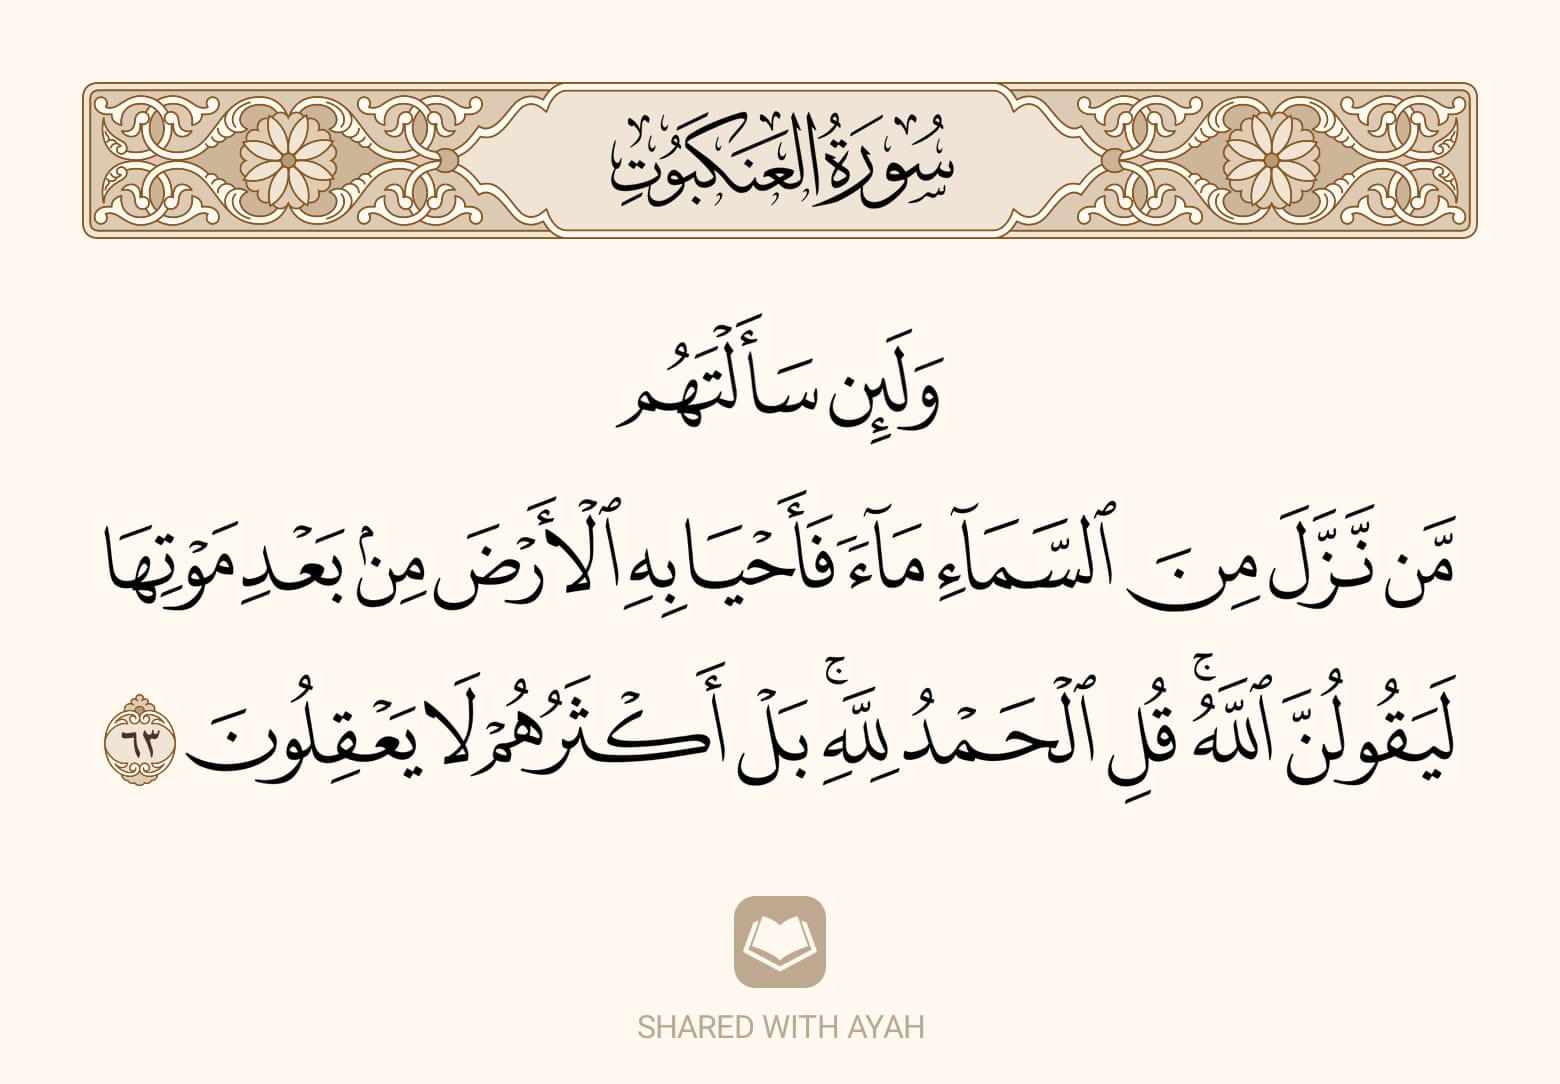 سُورَةُ العَنكَبُوتِ
وَلَئِن سَأَلۡتَهُم
مَّن نَّزَّلَ مِنَ ٱلسَّمَآءِ مَآءٗ فَأَحۡيَا بِهِ ٱلۡأَرۡضَ مِنۢ بَعۡدِ مَوۡتِهَا
لَيَقُولُنَّ ٱللَّهُۚ قُلِ ٱلۡحَمۡدُ لِلَّهِۚ بَلۡ أَكۡثَرُهُمۡ لَا يَعۡقِلُونَ ٦٣
SHARED WITH AYAH